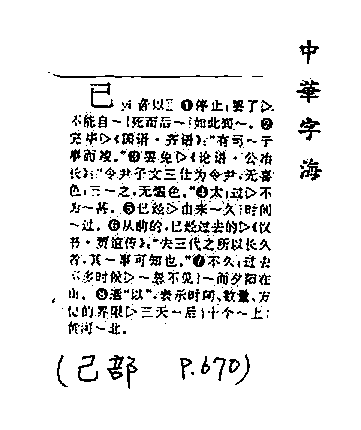 中華字海
已 yǐ 音以 ❶停止;罢了▷
不能自～|死而后～|如此而～。❷
完毕▷《国语·齐语》:“有司～于
事而竣。”❸罢免▷《论语·公冶
长》:“令尹子文三仕为令尹,无喜
色;三～之,无愠色。”❹太;过▷不
为～甚。❺已经▷由来～久|时间
～过。❻从前的,已经过去的▷《汉
书·贾谊传》:“夫三代之所以长久
者,其～事可知也。”❼不久;过去
不多时候▷～忽不见|～而夕阳在
山。❽通“以”,表示时间、数量、方
位的界限▷三天～后|十个～上|
黄河～北。
(己部 P.670)